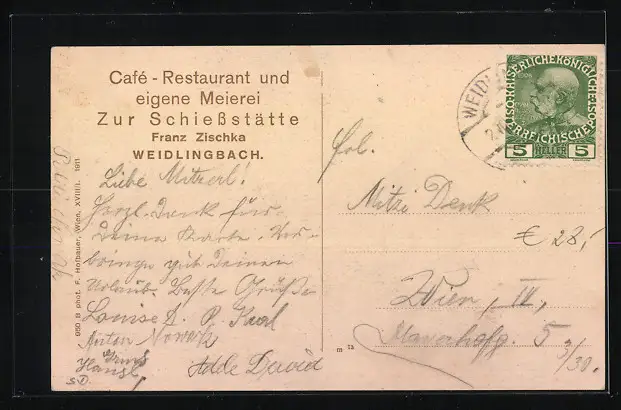 Café - Restaurant und
eigene Meierei
Zur Schießstätte
Franz Zischka
WEIDLINGBACH.
Liebe Mitzerl!
Herzl. Dank für
Deine Karte. Ver-
bringe gut Deinen
Urlaub. Beste Grüße
Louise
Anton Nowak
Hansl
Adde David
950 B phot. F. Hofbauer, Wien, XVIII/1. 1911
m 13
WEIDL
KAISERLICHE KÖNIGLICHE
ÖSTERREICHISCHE
5 HELLER 5
Frl.
Mitzi Denk
€ 28,
Wien, IV,
Mayerhofg. 5
3/30.